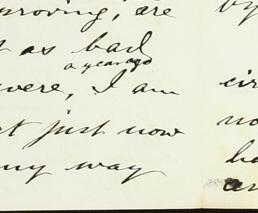 proving, are
as bad
a year ago
were, I am
t just now
my way
by
cir
no
ha
an